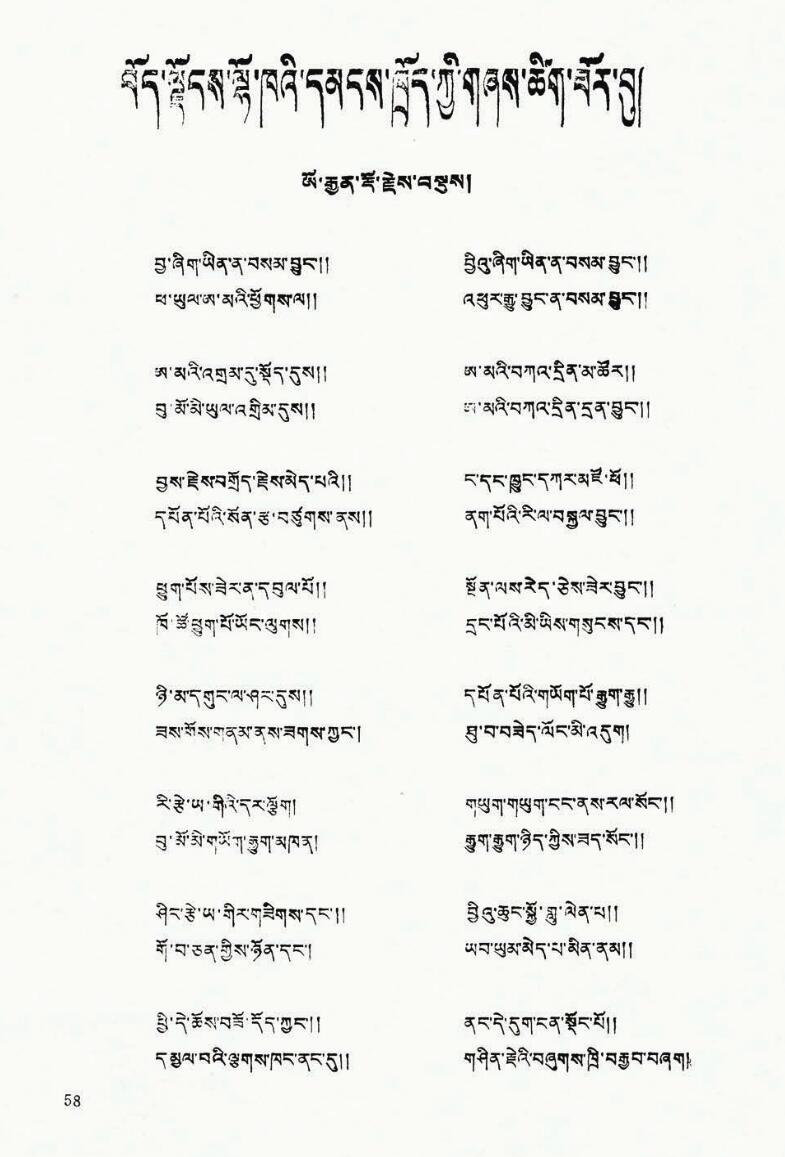 བོད་ལྗོངས་ལྷོ་ཁའི་དམངས་ཁྲོད་ཀྱི་གཞས་ཚིག་ཐོར་བུ།
ཨོ་རྒྱན་རྡོ་རྗེས་བསྡུས།
བྱ་ཞིག་ཡིན་ན་བསམ་བྱུང་།། བྱིའུ་ཞིག་ཡིན་ན་བསམ་བྱུང་།།
ཕ་ཡུལ་ཨ་མའི་ཕྱོགས་ལ།། འཕུར་རྒྱུ་བྱུང་ན་བསམ་བྱུང་།།
ཨ་མའི་འགྲམ་དུ་སྡོད་དུས།། ཨ་མའི་བཀའ་དྲིན་མ་ཚོར།།
བུ་མོ་མི་ཡུལ་འགྲིམ་དུས།། ཨ་མའི་བཀའ་དྲིན་དྲན་བྱུང་།།
བྱས་རྗེས་བགྲོད་རྗེས་མེད་པའི།། ང་དང་ཁྱུང་དཀར་མཛོ་ཕོ།།
དཔོན་པོའི་སོན་རྩ་བཙུགས་ནས།། ནག་པོའི་རིལ་བསྐྱལ་བྱུང་།།
ཕྱུག་པོས་ཟེར་ན་དབུལ་པོ།། སྔོན་ལས་རེད་ཅེས་ཟེར་བྱུང་།།
ཁོ་ཚོ་ཕྱུག་པོ་ཡོང་ལུགས།། དྲང་པོའི་མི་ཡིས་གསུངས་དང་།།
ཉི་མ་དགུང་ལ་ཤར་དུས།། དཔོན་པོའི་གཡོག་པོ་རྒྱུག་རྒྱུ།།
ཟས་གོས་གནམ་ནས་ཟགས་ཀྱང་། ཐུ་བ་བཟེད་ལོང་མི་འདུག
རི་རྩེ་ཡ་གིའི་དར་ལྕོག གཡུག་གཡུག་ངང་ནས་རལ་སོང་།།
བུ་མོ་མི་གཡོག་རྒྱུག་མཁན། རྒྱུག་རྒྱུག་ཉིད་ཀྱིས་ཟད་སོང་།།
ཤིང་རྩེ་ཡ་གིར་གཟིགས་དང་།། བྱིའུ་ཆུང་སྐྱོ་གླུ་ལེན་པ།།
གོ་བ་ཅན་གྱིས་ཉོན་དང་། ཡབ་ཡུམ་མེད་པ་མིན་ནམ།།
ཕྱི་དེ་ཆོས་བཟོ་དོད་ཀྱང་།། ནང་དེ་དུག་ངན་སྡོང་པོ།།
དམྱལ་བའི་ལྕགས་ཁང་ནང་དུ།། གཤིན་རྗེའི་བཞུགས་ཁྲི་བརྒྱབ་བཞག
58